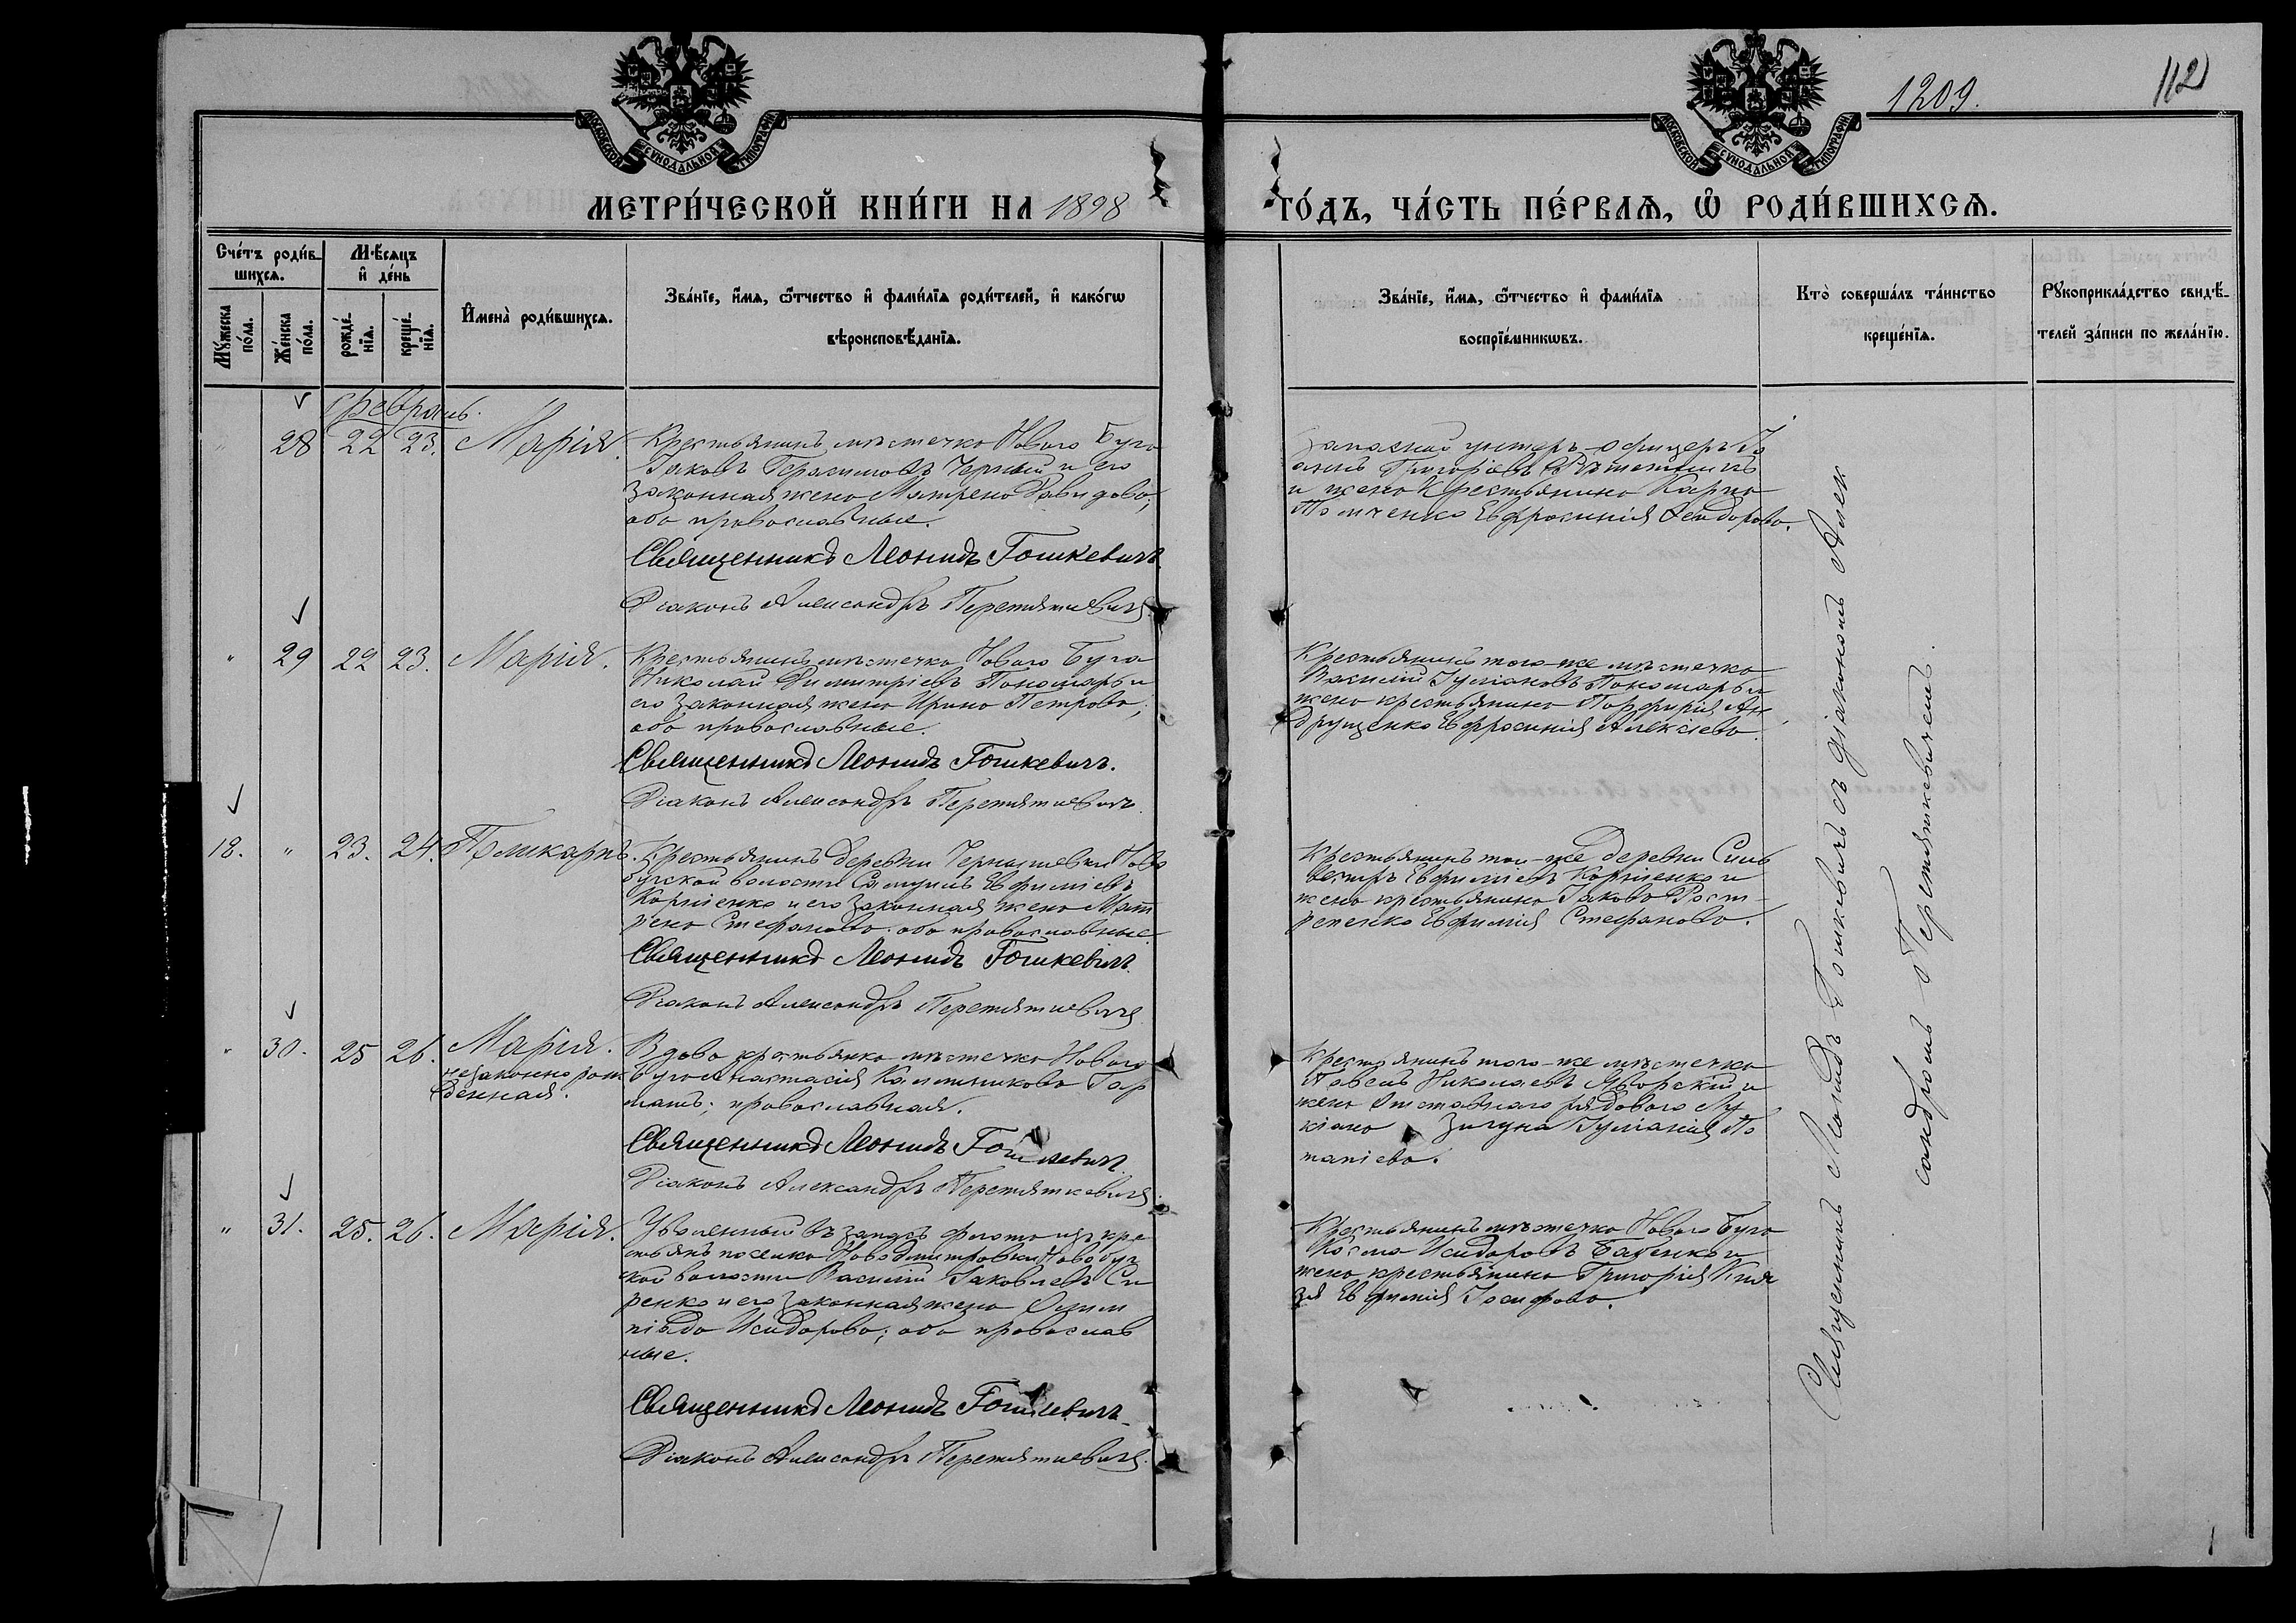 1209.
112
МОСКОВСКОЙ СѴНОДАЛЬНОЙ ТИПОГРАФІИ
МОСКОВСКОЙ СѴНОДАЛЬНОЙ ТИПОГРАФІИ
МЕТРИ́ЧЕСКОЙ КНИ́ГИ НА 1898 ГО́ДЪ, ЧА́СТЬ ПЕ́РВАѦ, Ѽ РОДИ́ВШИХСѦ.
Сче́тъ роди́вшихсѧ.
Мꙋ́жеска по́ла.
Же́нска по́ла.
Мѣ́сѧцъ и҆ де́нь
рожде́нїѧ.
креще́нїѧ.
И҆мена̀ роди́вшихсѧ.
Зва́нїе, и҆́мѧ, ѻ҆́тчество и҆ фами́лїѧ роди́телей, и҆ како́гѡ
вѣроисповѣ́данїѧ.
Зва́нїе, и҆́мѧ, ѻ҆́тчество и҆ фами́лїѧ
воспрїе́мникѡвъ.
Кто̀ соверша́лъ та́инство
креще́нїѧ.
Рꙋкоприкла́дство свидѣ́-
телей за́писи по жела́нїю.
Февраль.
" 28 22 23. Марія.
Крестьянинъ мѣстечка Новаго Буга
Іаковъ Герасимовъ Черный и его
законная жена Матрена Давидова;
оба православные.
Священникъ Леонидъ Гошкевичъ.
Діаконъ Александръ Перетяткевичъ.
Запасной унтеръ-офицеръ Іо
аннъ Григоріевъ
и жена крестьянина Карпа
Евфросинія Феодорова.
" 29 22 23. Марія.
Крестьянинъ мѣстечка Новаго Буга
Николай Димитріевъ Пономарь и
его законная жена Ирина Петрова;
оба православные.
Священникъ Леонидъ Гошкевичъ.
Діаконъ Александръ Перетяткевичъ
Крестьянинъ того-же мѣстечка
Василій Іуліановъ Пономарь и
жена крестьянина Порфирія Ан
друщенко Евфросинія Алексіева.
18. " 23. 24. Поликарпъ.
Крестьянинъ деревни Чернышевки Ново
бугской волости Самуилъ Евфиміевъ
Корніенко и его законная жена Мат
рена Стефанова. оба православные
Священникъ Леонидъ Гошкевичъ.
Діаконъ Александръ Перетяткевичъ
Крестьянинъ той-же деревни Силь
вестръ Евфиміевъ Корніенко и
жена крестьянина Іакова Рост-
репенко Евфимія Стефанова.
" 30. 25 26. Марія.
незаконно рож
денная.
Вдова крестьянка мѣстечка Новаго
Буга Анастасія Каллиникова Гар
машъ; православная.
Священникъ Леонидъ Гошкевичъ.
Діаконъ Александръ Перетяткевичъ.
Крестьянинъ того-же мѣстечка
Павелъ Николаевъ Яворскій и
жена отставнаго рядового Лу
кіана Зигуна Іуліанія По
тапіева.
" 31. 25. 26. Марія.
Уволенный въ запасъ флота изъ кре
стьянъ поселка Новодмитровки Новобуг
ской волости Василій Іаковлевъ Си
ренко и его законная жена Олим
піада Исидорова; оба православ
ные.
Священникъ Леонидъ Гошкевичъ.
Діаконъ Александръ Перетяткевичъ.
Крестьянинъ мѣстечка Новаго Буга
Косма Исидоровъ Бабенко и
жена крестьянина Григорія Кня
зя Евфимія Іосифова.
Священникъ Леонидъ Гошкевичъ съ діакономъ Алек
сандромъ Перетяткевичемъ.